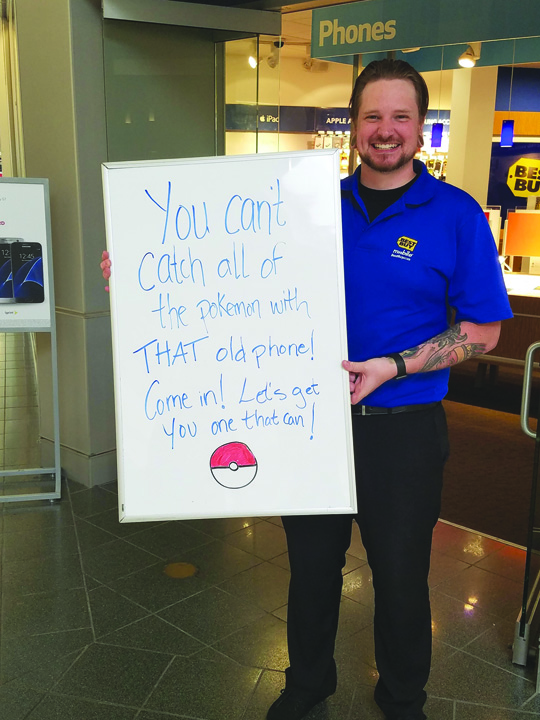 Phones
iPad
APPLE
BEST
BUY
You can't
catch all of
the pokemon with
THAT old phone!
Come in! Let's get
you one that can!
BEST
BUY
mobile
12:45
12:
sprint